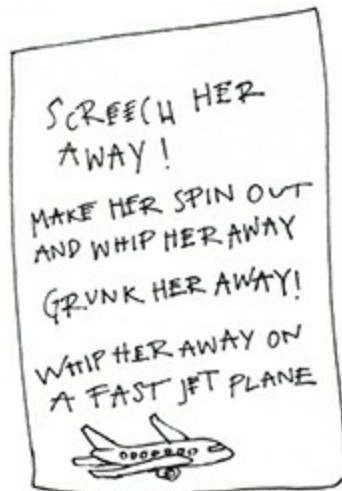 SCREECH HER
AWAY!
MAKE HER SPIN OUT
AND WHIP HER AWAY
GRUNK HER AWAY!
WHIP HER AWAY ON
A FAST JET PLANE